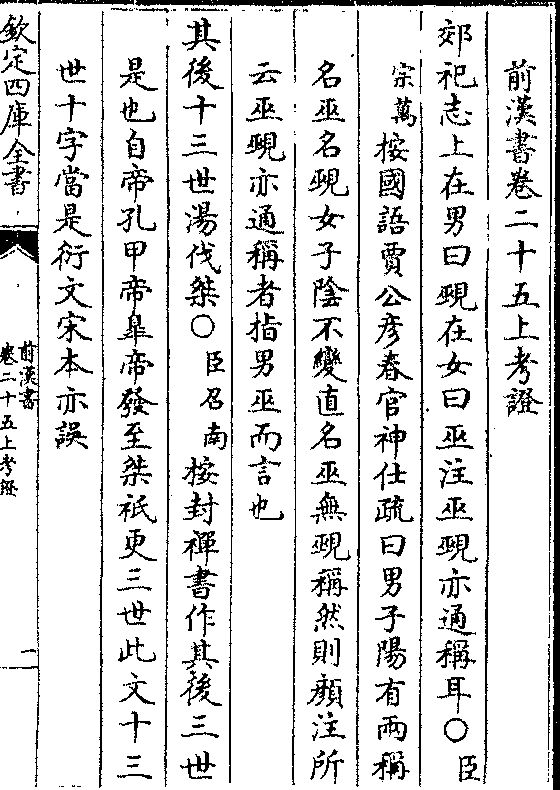 前漢書卷二十五上考證
郊祀志上在男曰覡在女曰巫注巫覡亦通稱耳○臣
宗萬按國語賈公彦春官神仕疏曰男子陽有兩稱
名巫名覡女子陰不變直名巫無覡稱然則顔注所
云巫覡亦通稱者指男巫而言也
其後十三世湯伐桀○臣召南按封禪書作其後三世
是也自帝孔甲帝臯帝發至桀祇更三世此文十三
世十字當是衍文宋本亦誤
欽定四庫全書
前漢書
卷二十五上考證
一